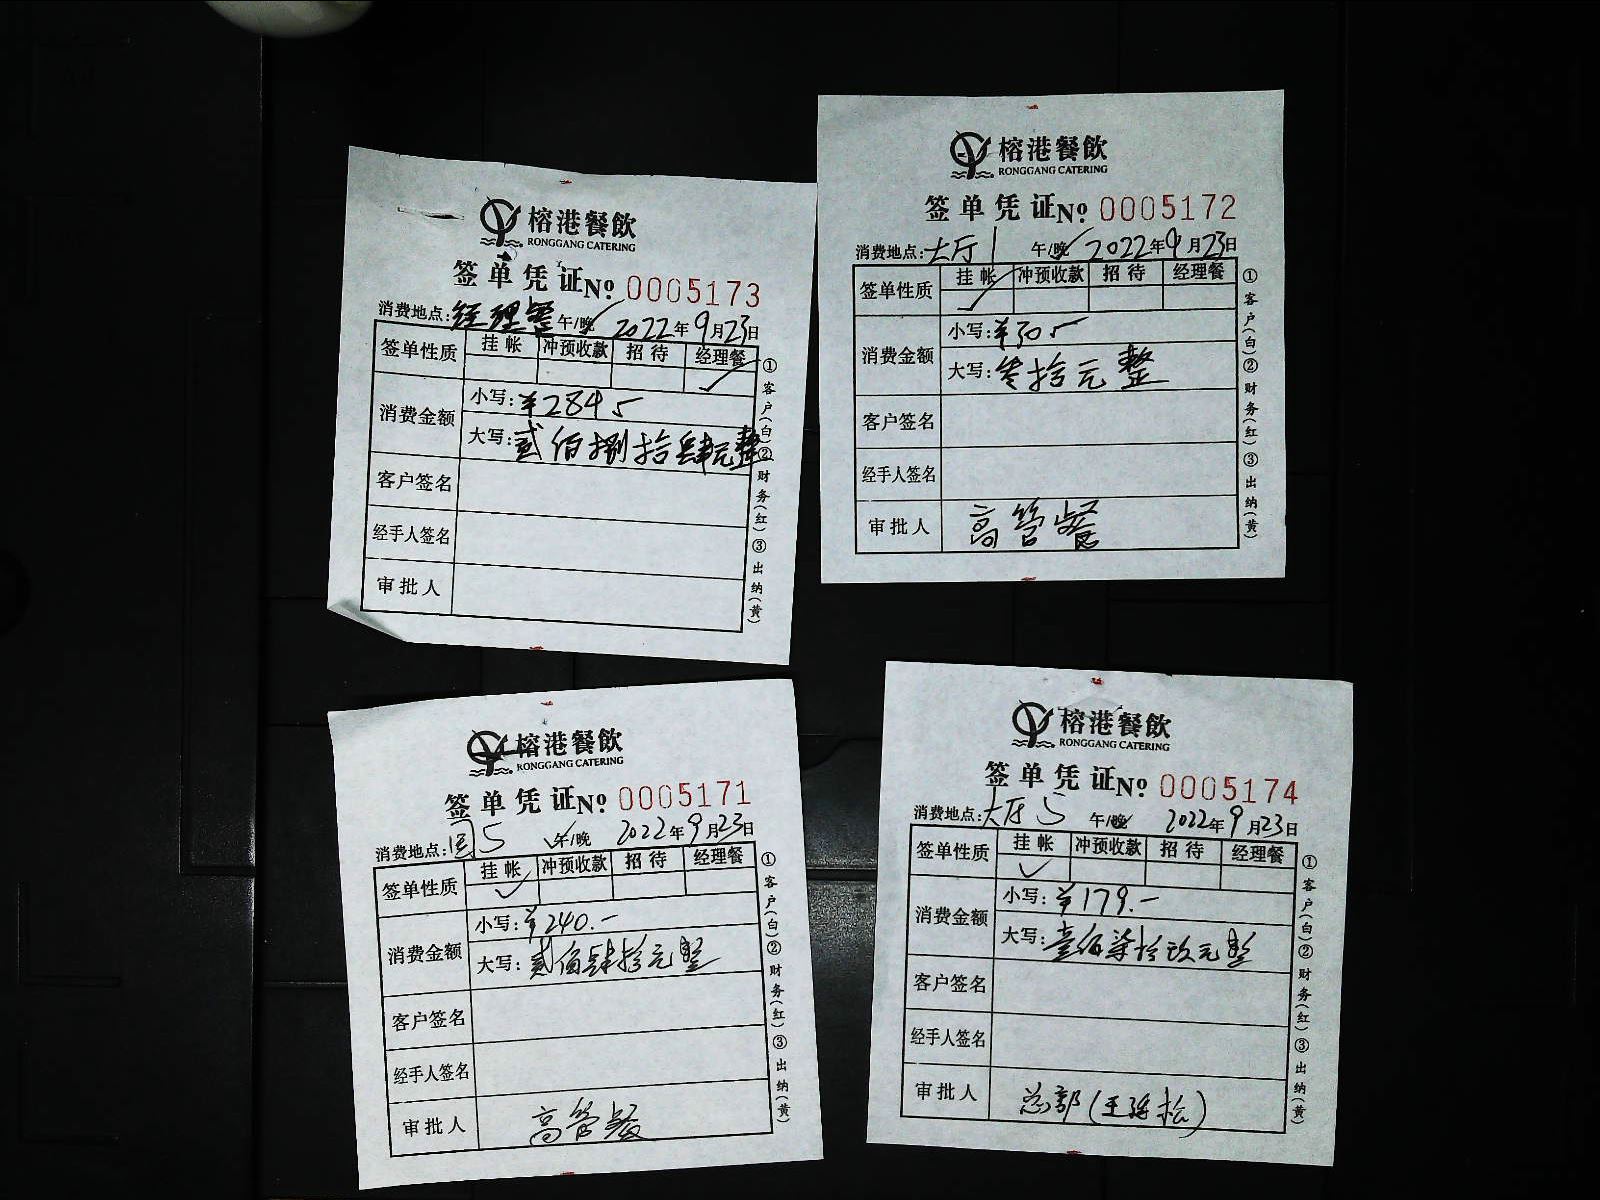 榕港餐飲
RONGGANG CATERING
签单凭证 No 0005173
消费地点: 经理餐 午/晚 2022年9月23日
签单性质 挂帐 冲预收款 招待 经理餐
消费金额 小写: ¥284
大写: 贰佰捌拾肆元整
客户签名
经手人签名
审批人
①客户(白)②财务(红)③出纳(黄)
榕港餐飲
RONGGANG CATERING
签单凭证 No 0005172
消费地点: 大厅1 午/晚 2022年9月23日
签单性质 挂帐 冲预收款 招待 经理餐
消费金额 小写: ¥30
大写: 拾元整
客户签名
经手人签名
审批人 高管餐
①客户(白)②财务(红)③出纳(黄)
榕港餐飲
RONGGANG CATERING
签单凭证 No 0005171
消费地点: 午/晚 2022年9月23日
签单性质 挂帐 冲预收款 招待 经理餐
消费金额 小写: ¥240.-
大写: 贰佰肆拾元整
客户签名
经手人签名
审批人 高管餐
①客户(白)②财务(红)③出纳(黄)
榕港餐飲
RONGGANG CATERING
签单凭证 No 0005174
消费地点: 大厅5 午/晚 2022年9月23日
签单性质 挂帐 冲预收款 招待 经理餐
消费金额 小写: ¥179.-
大写: 壹佰柒拾玖元整
客户签名
经手人签名
审批人 总部(王 松)
①客户(白)②财务(红)③出纳(黄)